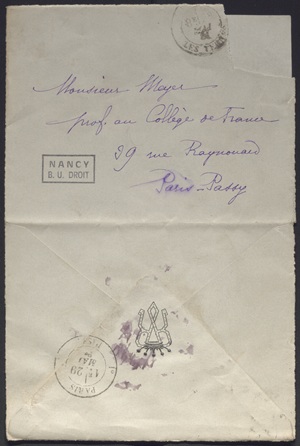 Monsieur Mayer
prof. au Collège de France
39 rue Raynouard
Paris-Passy
NANCY
B. U. DROIT
PARIS
MAI